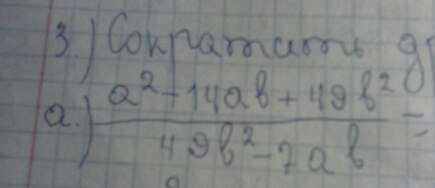 3.) Сократить
а.) a² - 14ab + 49b² / 49b² - 7ab =